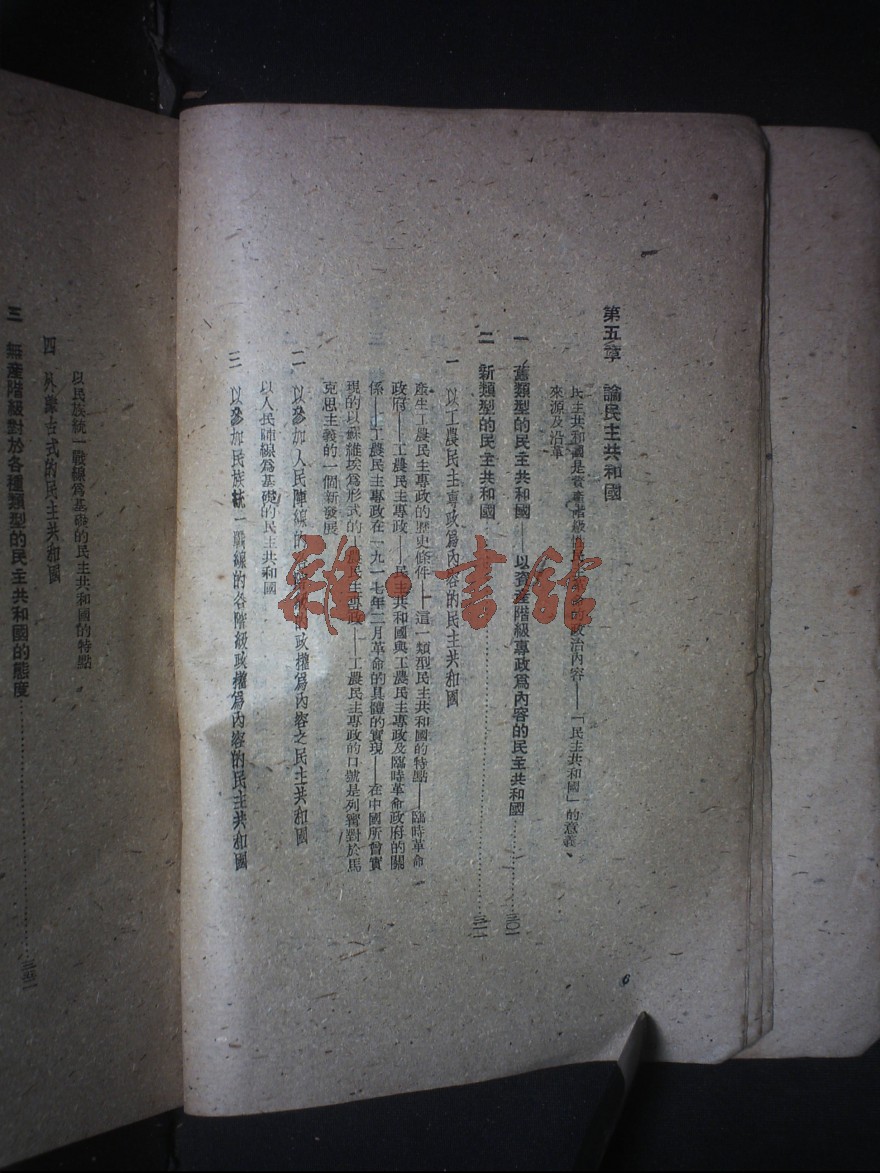 第五章　論民主共和國
民主共和國是資產階級性民主革命的政治內容——「民主共和國」的意義、
來源及沿革
一　舊類型的民主共和國——以資產階級專政爲內容的民主共和國……三〇一
二　新類型的民主共和國……三一一
一　以工農民主專政爲內容的民主共和國
產生工農民主專政的歷史條件——這一類型民主共和國的特點——臨時革命
政府——工農民主專政——民主共和國與工農民主專政及臨時革命政府的關
係——工農民主專政在一九一七年二月革命的具體的實現——在中國所曾實
現的以蘇維埃爲形式的工農民主專政——工農民主專政的口號是列寧對於馬
克思主義的一個新發展
二　以參加人民陣線的的政權爲內容之民主共和國
以人民陣線爲基礎的民主共和國
三　以參加民族統一戰線的各階級政權爲內容的民主共和國
6
以民族統一戰線爲基礎的民主共和國的特點
四　外蒙古式的民主共和國
三　無產階級對於各種類型的民主共和國的態度……
雜·書館